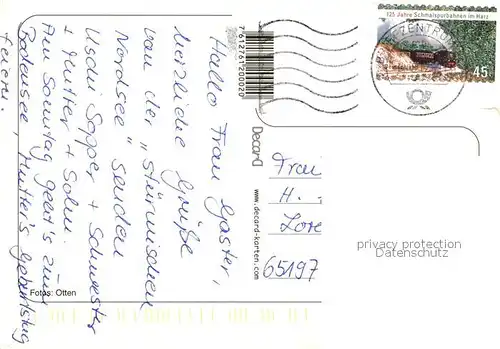 Hallo Frau Gaster,
herzliche Grüße
von der "stürmischen
Nordsee" senden
Uschi Sopper + Schwester
+ Mutter + Sohn.
Am Sonntag geht's zum
Bodensee, Mutter's Geburtstag
feiern.
Fotos: Otten
7612761200020
Decard
www.decard-karten.com
125 Jahre Schmalspurbahnen im Harz
45
ZENTRUM
Frau
H.
Lore
65197
privacy protection
Datenschutz